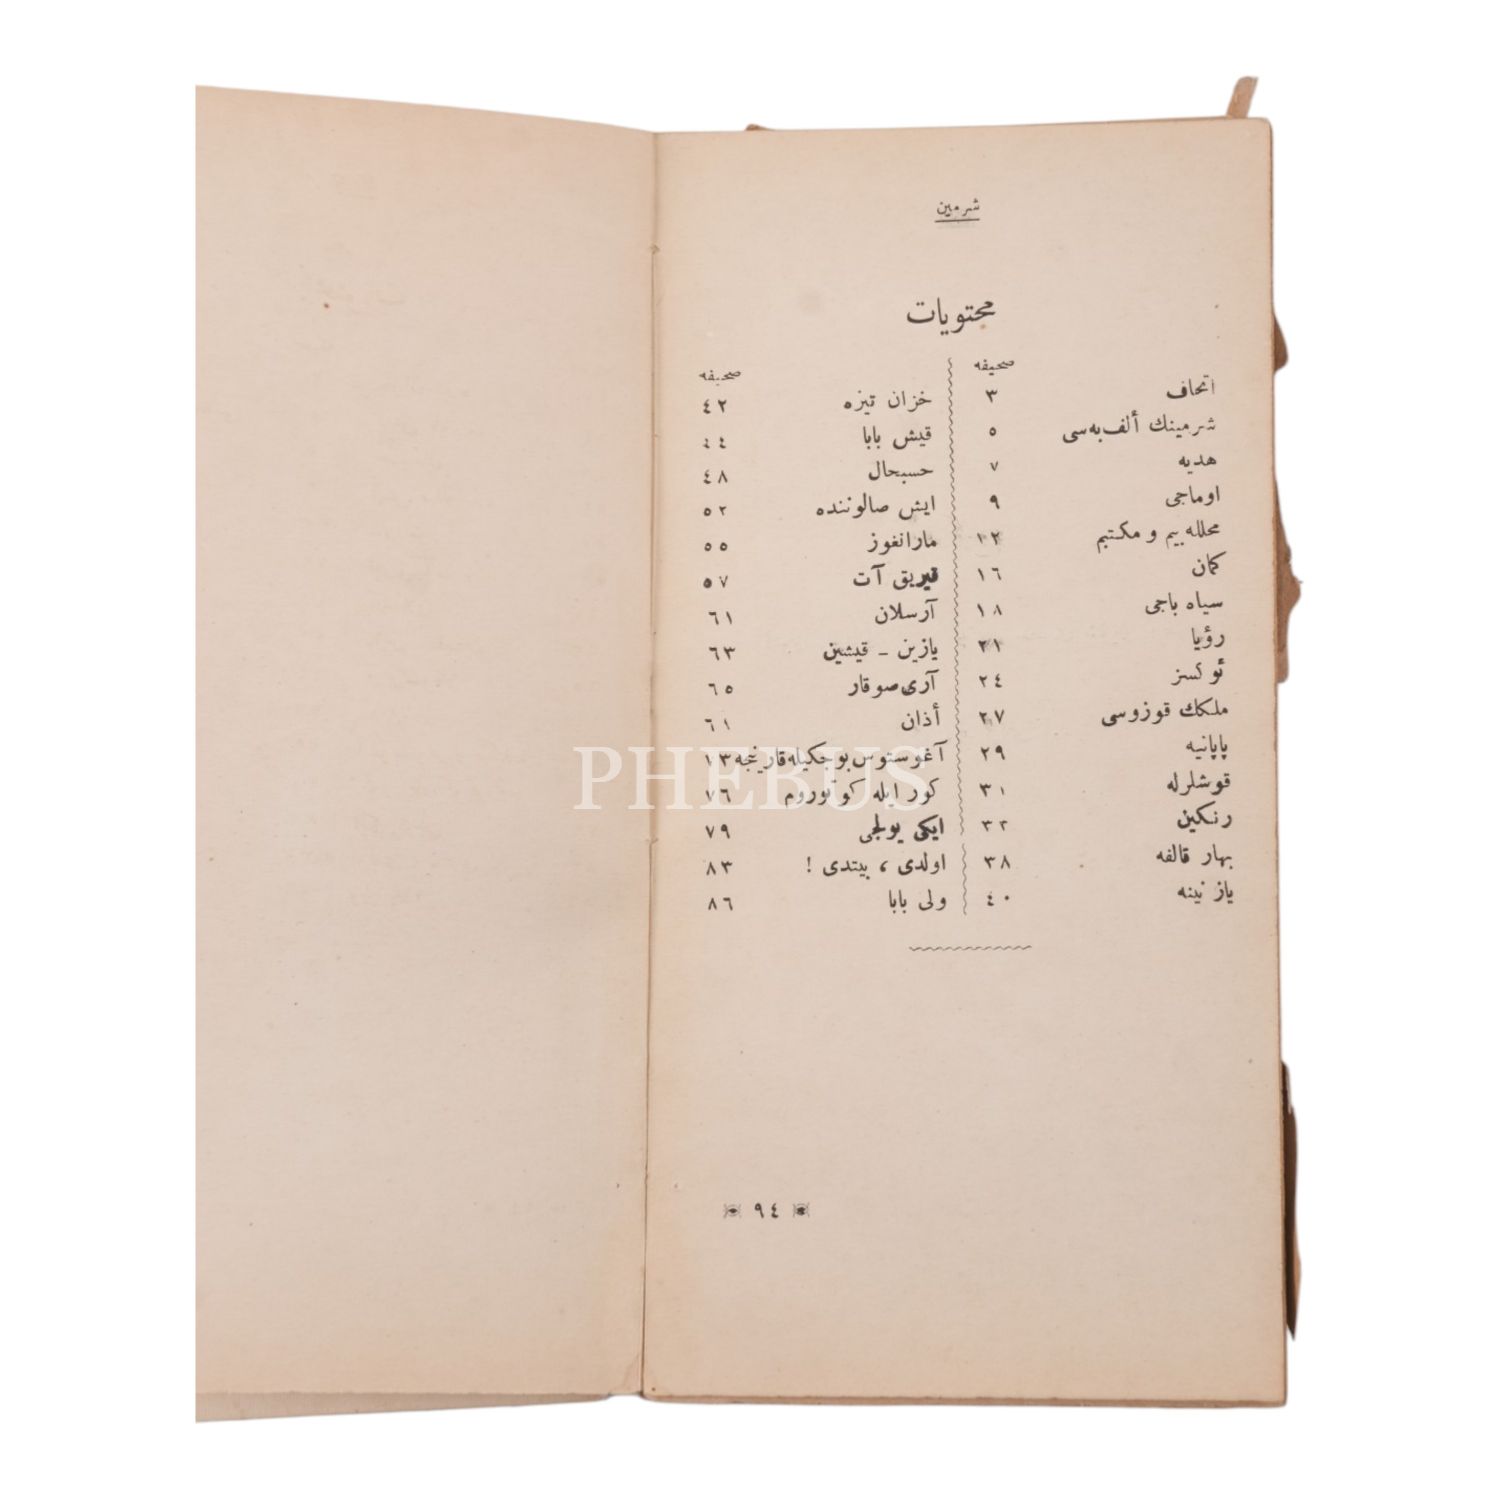 شرمین
محتويات
صحیفه
اتحاف ٣
شرمينك ألف‌به‌سى ٥
هديه ٧
اوماجى ٩
محلله‌بيم و مكتبم ١٢
كمان ١٦
سياه باجى ١٨
رؤيا ٢١
ئوكسز ٢٤
ملكك قوزوسى ٢٧
پاپانيه ٢٩
قوشلرله ٣١
رنكين ٣٣
بهار قالفه ٣٨
ياز نينه ٤٠
صحیفه
خزان تيزه ٤٢
قيش بابا ٤٤
حسبحال ٤٨
ايش صالوننده ٥٢
مارانغوز ٥٥
قيريق آت ٥٧
آرسلان ٦١
يازين ـ قيشين ٦٣
آرى‌صوقار ٦٥
أذان ٦١
آغوستوس‌بوجكيله‌قارينجه ١٣
كور ايله كوتوروم ٧٦
ايكى يولجى ٧٩
اولدى ، بيتدى ! ٨٣
ولى بابا ٨٦
٩٤
PHEBUS